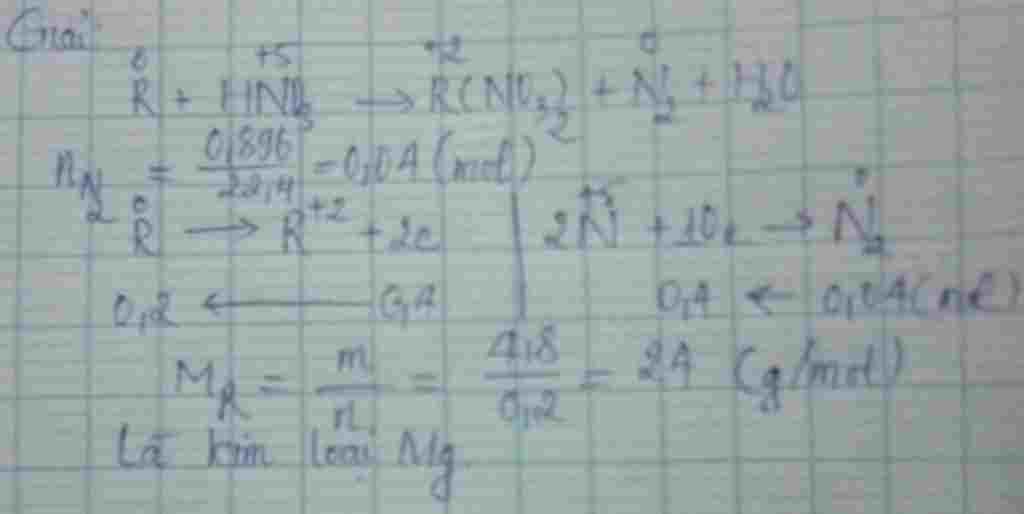 Giải
R⁰ + HN⁺⁵O₃ → R⁺²(NO₃)₂ + N₂⁰ + H₂O
n_N₂ = 0,896/22,4 = 0,04 (mol)
R⁰ → R⁺² + 2e | 2N⁺⁵ + 10e → N₂⁰
0,2 ← 0,4 | 0,4 ← 0,04 (mol)
M_R = m/n = 4,8/0,2 = 24 (g/mol)
Là kim loại Mg.